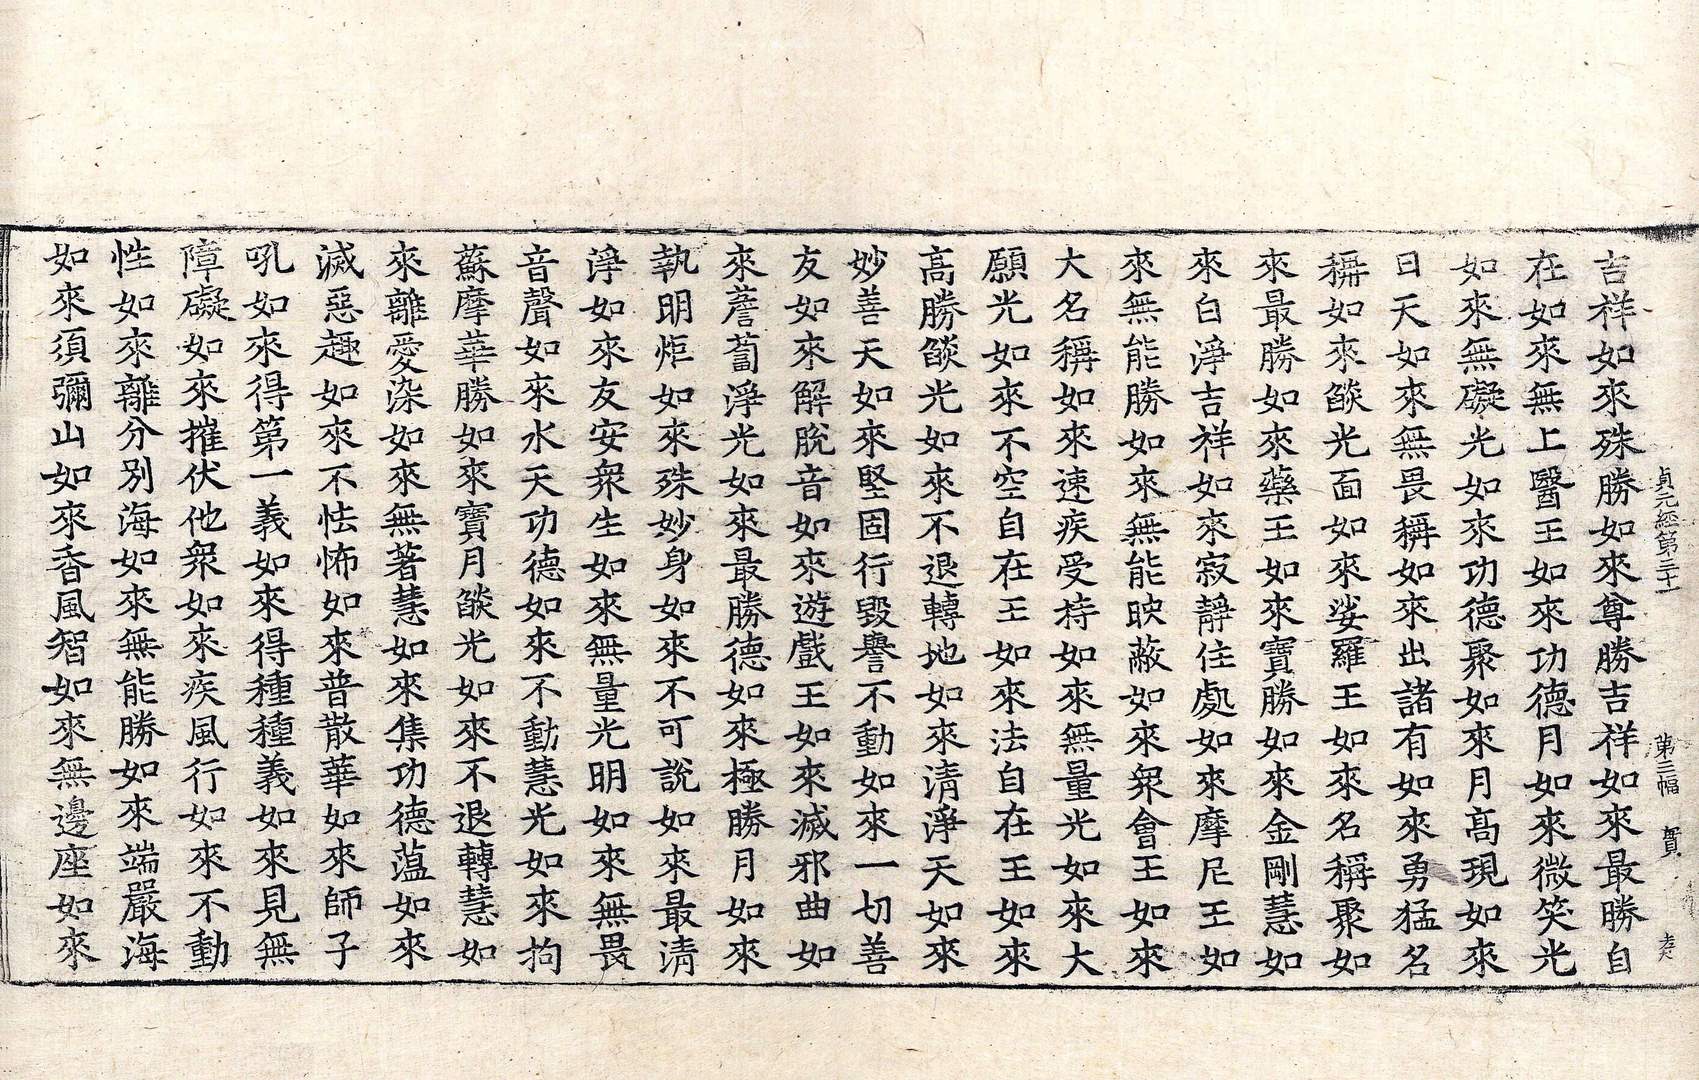 貞元經第三十 第三幅
吉祥如來殊勝如來尊勝吉祥如來最勝自
在如來無上醫王如來功德月如來微笑光
如來無礙光如來功德聚如來月髙現如來
日天如來無畏稱如來出諸有如來勇猛名
稱如來燄光面如來娑羅王如來名稱聚如
來最勝如來藥王如來寶勝如來金剛慧如
來白淨吉祥如來寂靜住處如來摩尼王如
來無能勝如來無能映蔽如來衆會王如來
大名稱如來速疾受持如來無量光如來大
願光如來不空自在王如來法自在王如來
髙勝燄光如來不退轉地如來清淨天如來
妙善天如來堅固行毀譽不動如來一切善
友如來解脫音如來遊戲王如來滅邪曲如
來薝蔔淨光如來最勝德如來極勝月如來
執明炬如來殊妙身如來不可說如來最清
淨如來友安衆生如來無量光明如來無畏
音聲如來水天功德如來不動慧光如來拘
蘇摩華勝如來寶月燄光如來不退轉慧如
來離愛染如來無著慧如來集功德薀如來
滅惡趣如來不怯怖如來普散華如來師子
吼如來得第一義如來得種種義如來見無
障礙如來摧伏他衆如來疾風行如來不動
性如來離分別海如來無能勝如來端嚴海
如來須彌山如來香風智如來無邊座如來